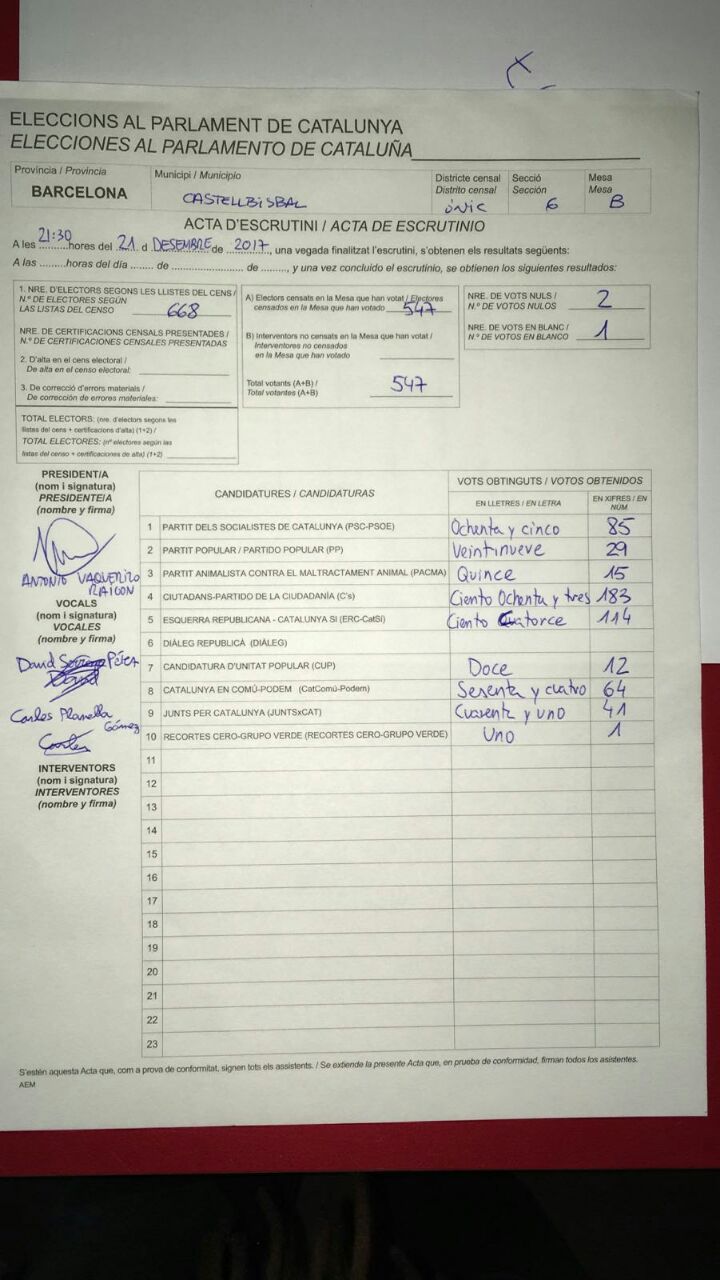 ELECCIONS AL PARLAMENT DE CATALUNYA
ELECCIONES AL PARLAMENTO DE CATALUÑA
Província / Provincia
BARCELONA
Municipi / Municipio
CASTELLBISBAL
Districte censal
Distrito censal
ÚNIC
Secció
Sección
6
Mesa
Mesa
B
ACTA D'ESCRUTINI / ACTA DE ESCRUTINIO
A les 21:30 hores del 21 d DESEMBRE de 2017, una vegada finalitzat l'escrutini, s'obtenen els resultats següents:
A las .........horas del día ........ de ........................ de ........., y una vez concluido el escrutinio, se obtienen los siguientes resultados:
1. NRE. D'ELECTORS SEGONS LES LLISTES DEL CENS /
N.º DE ELECTORES SEGÚN
LAS LISTAS DEL CENSO 668
NRE. DE CERTIFICACIONS CENSALS PRESENTADES /
N.º DE CERTIFICACIONES CENSALES PRESENTADAS
2. D'alta en el cens electoral /
De alta en el censo electoral:
3. De correcció d'errors materials /
De corrección de errores materiales:
TOTAL ELECTORS: (nre. d'electors segons les
llistes del cens + certificacions d'alta) (1+2) /
TOTAL ELECTORES: (nº electores según las
listas del censo + certificaciones de alta) (1+2)
A) Electors censats en la Mesa que han votat / Electores
censados en la Mesa que han votado 547
B) Interventors no censats en la Mesa que han votat /
Interventores no censados
en la Mesa que han votado
Total votants (A+B) /
Total votantes (A+B) 547
NRE. DE VOTS NULS /
N.º DE VOTOS NULOS 2
NRE. DE VOTS EN BLANC /
N.º DE VOTOS EN BLANCO 1
PRESIDENT/A
(nom i signatura)
PRESIDENTE/A
(nombre y firma)
ANTONIO VAQUERIZO
VOCALS
(nom i signatura)
VOCALES
(nombre y firma)
David Serrano Pérez
David
Carles Planella
Gómez
Carles
INTERVENTORS
(nom i signatura)
INTERVENTORES
(nombre y firma)
CANDIDATURES / CANDIDATURAS
VOTS OBTINGUTS / VOTOS OBTENIDOS
EN LLETRES / EN LETRA
EN XIFRES / EN
NÚM.
1 PARTIT DELS SOCIALISTES DE CATALUNYA (PSC-PSOE) Ochenta y cinco 85
2 PARTIT POPULAR / PARTIDO POPULAR (PP) Veintinueve 29
3 PARTIT ANIMALISTA CONTRA EL MALTRACTAMENT ANIMAL (PACMA) Quince 15
4 CIUTADANS-PARTIDO DE LA CIUDADANÍA (C's) Ciento Ochenta y tres 183
5 ESQUERRA REPUBLICANA - CATALUNYA SÍ (ERC-CatSí) Ciento Catorce 114
6 DIÀLEG REPUBLICÀ (DIÀLEG)
7 CANDIDATURA D'UNITAT POPULAR (CUP) Doce 12
8 CATALUNYA EN COMÚ-PODEM (CatComú-Podem) Sesenta y cuatro 64
9 JUNTS PER CATALUNYA (JUNTSxCAT) Cuarenta y uno 41
10 RECORTES CERO-GRUPO VERDE (RECORTES CERO-GRUPO VERDE) Uno 1
11
12
13
14
15
16
17
18
19
20
21
22
23
S'estén aquesta Acta que, com a prova de conformitat, signen tots els assistents. / Se extiende la presente Acta que, en prueba de conformidad, firman todos los asistentes.
AEM